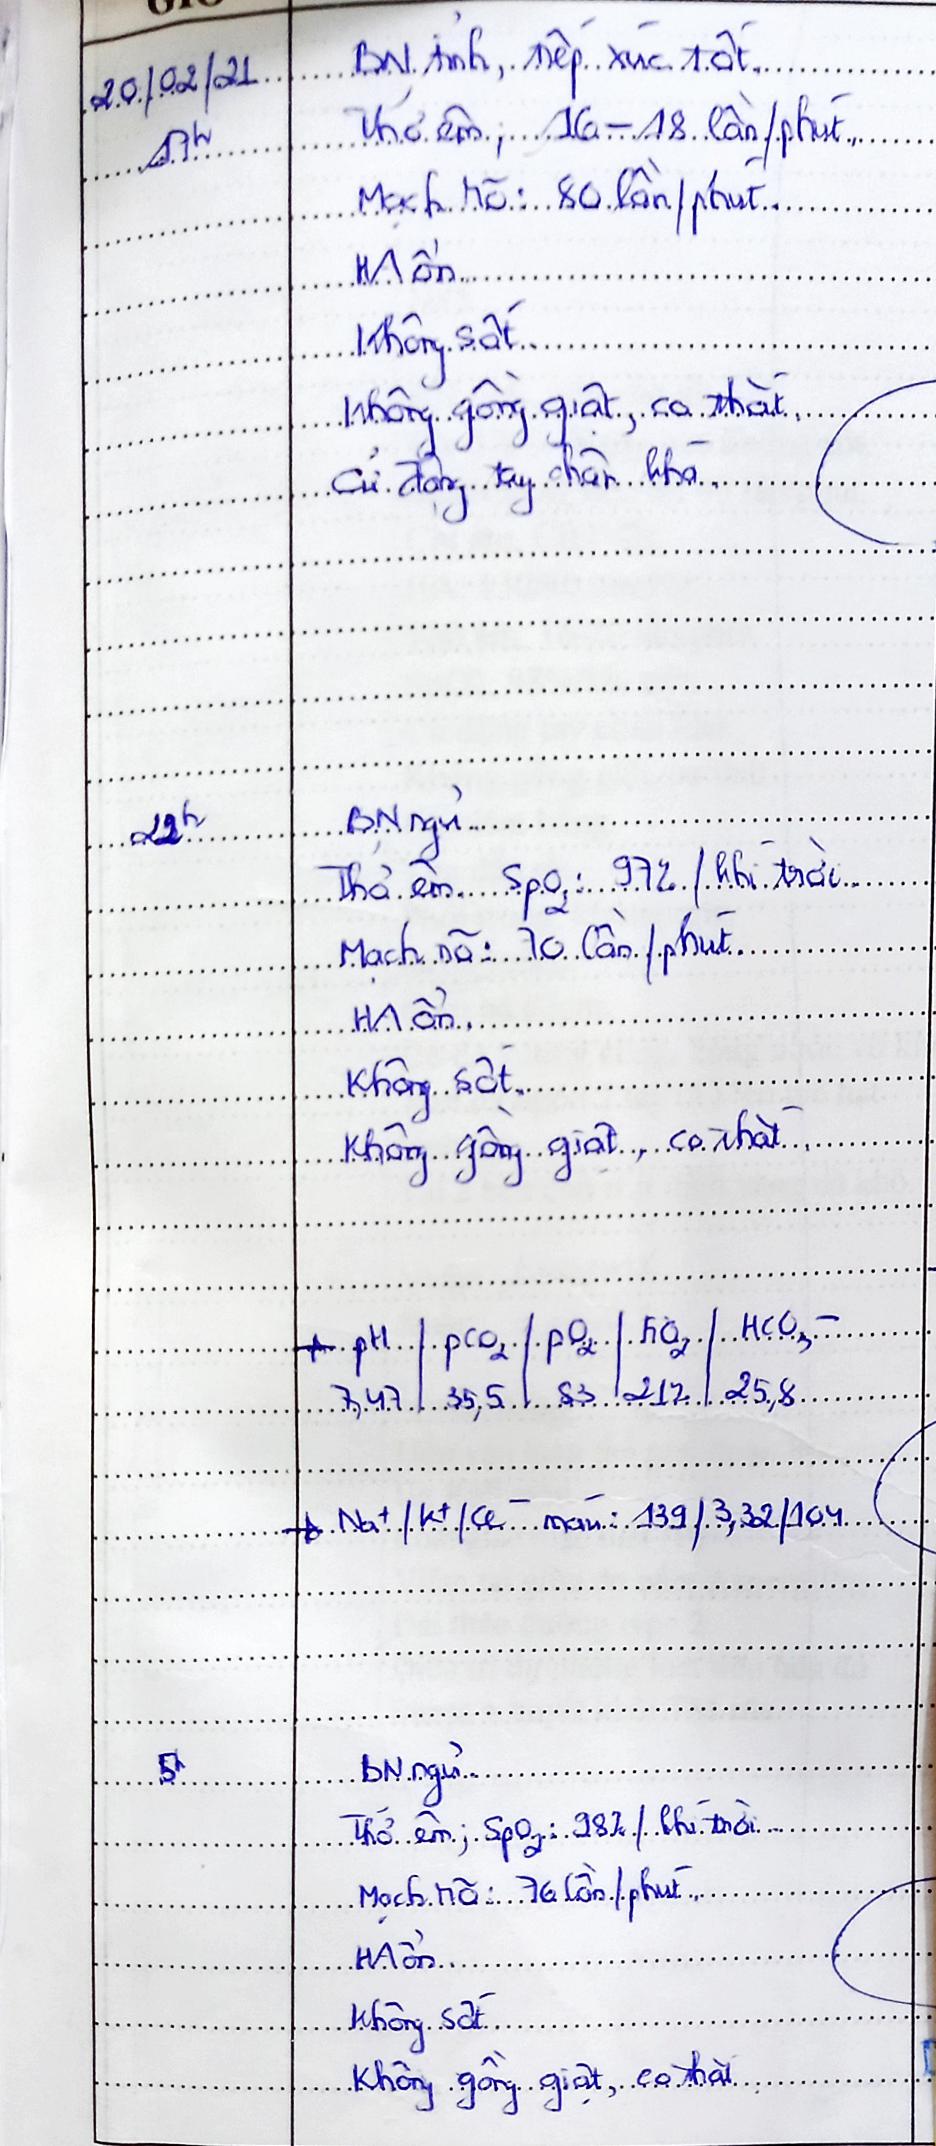 GIỜ
20/02/21
17h
BN tỉnh, tiếp xúc tốt.
Thở êm, 16-18 lần/phút.
Mạch rõ: 80 lần/phút.
HA ổn.
Không sốt.
Không gồng giật, co thắt.
Cử động tay chân khá.
22h
BN ngủ.
Thở êm. SpO2: 97% / khí trời.
Mạch rõ: 70 lần/phút.
HA ổn.
Không sốt.
Không gồng giật, co thắt.
→ pH / pCO2 / pO2 / FiO2 / HCO3-
7,47 / 35,5 / 83 / 21% / 25,8
→ Na+/K+/Cl- máu: 139/3,32/104
5h
BN ngủ.
Thở êm; SpO2: 98% / khí trời.
Mạch rõ: 76 lần/phút.
HA ổn.
Không sốt
Không gồng giật, co thắt.